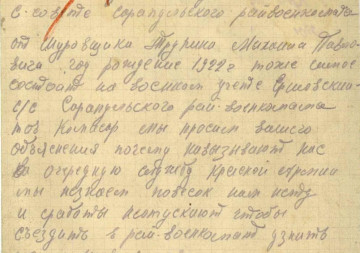 с-совете Сарапульского райвоенкомата
от Муровщика Трукина Михаила Павло-
вича год рождение 1922 г тоже самое
состоит на военном учете
с/с Сарапульского рай-военкомата
тов Комисар мы просим вашего
объяснения почему нас
в очередную службу Красной Армии
мы повесок нам
и сработы неотпускают чтобы
съездить в рай-военкомат узнать